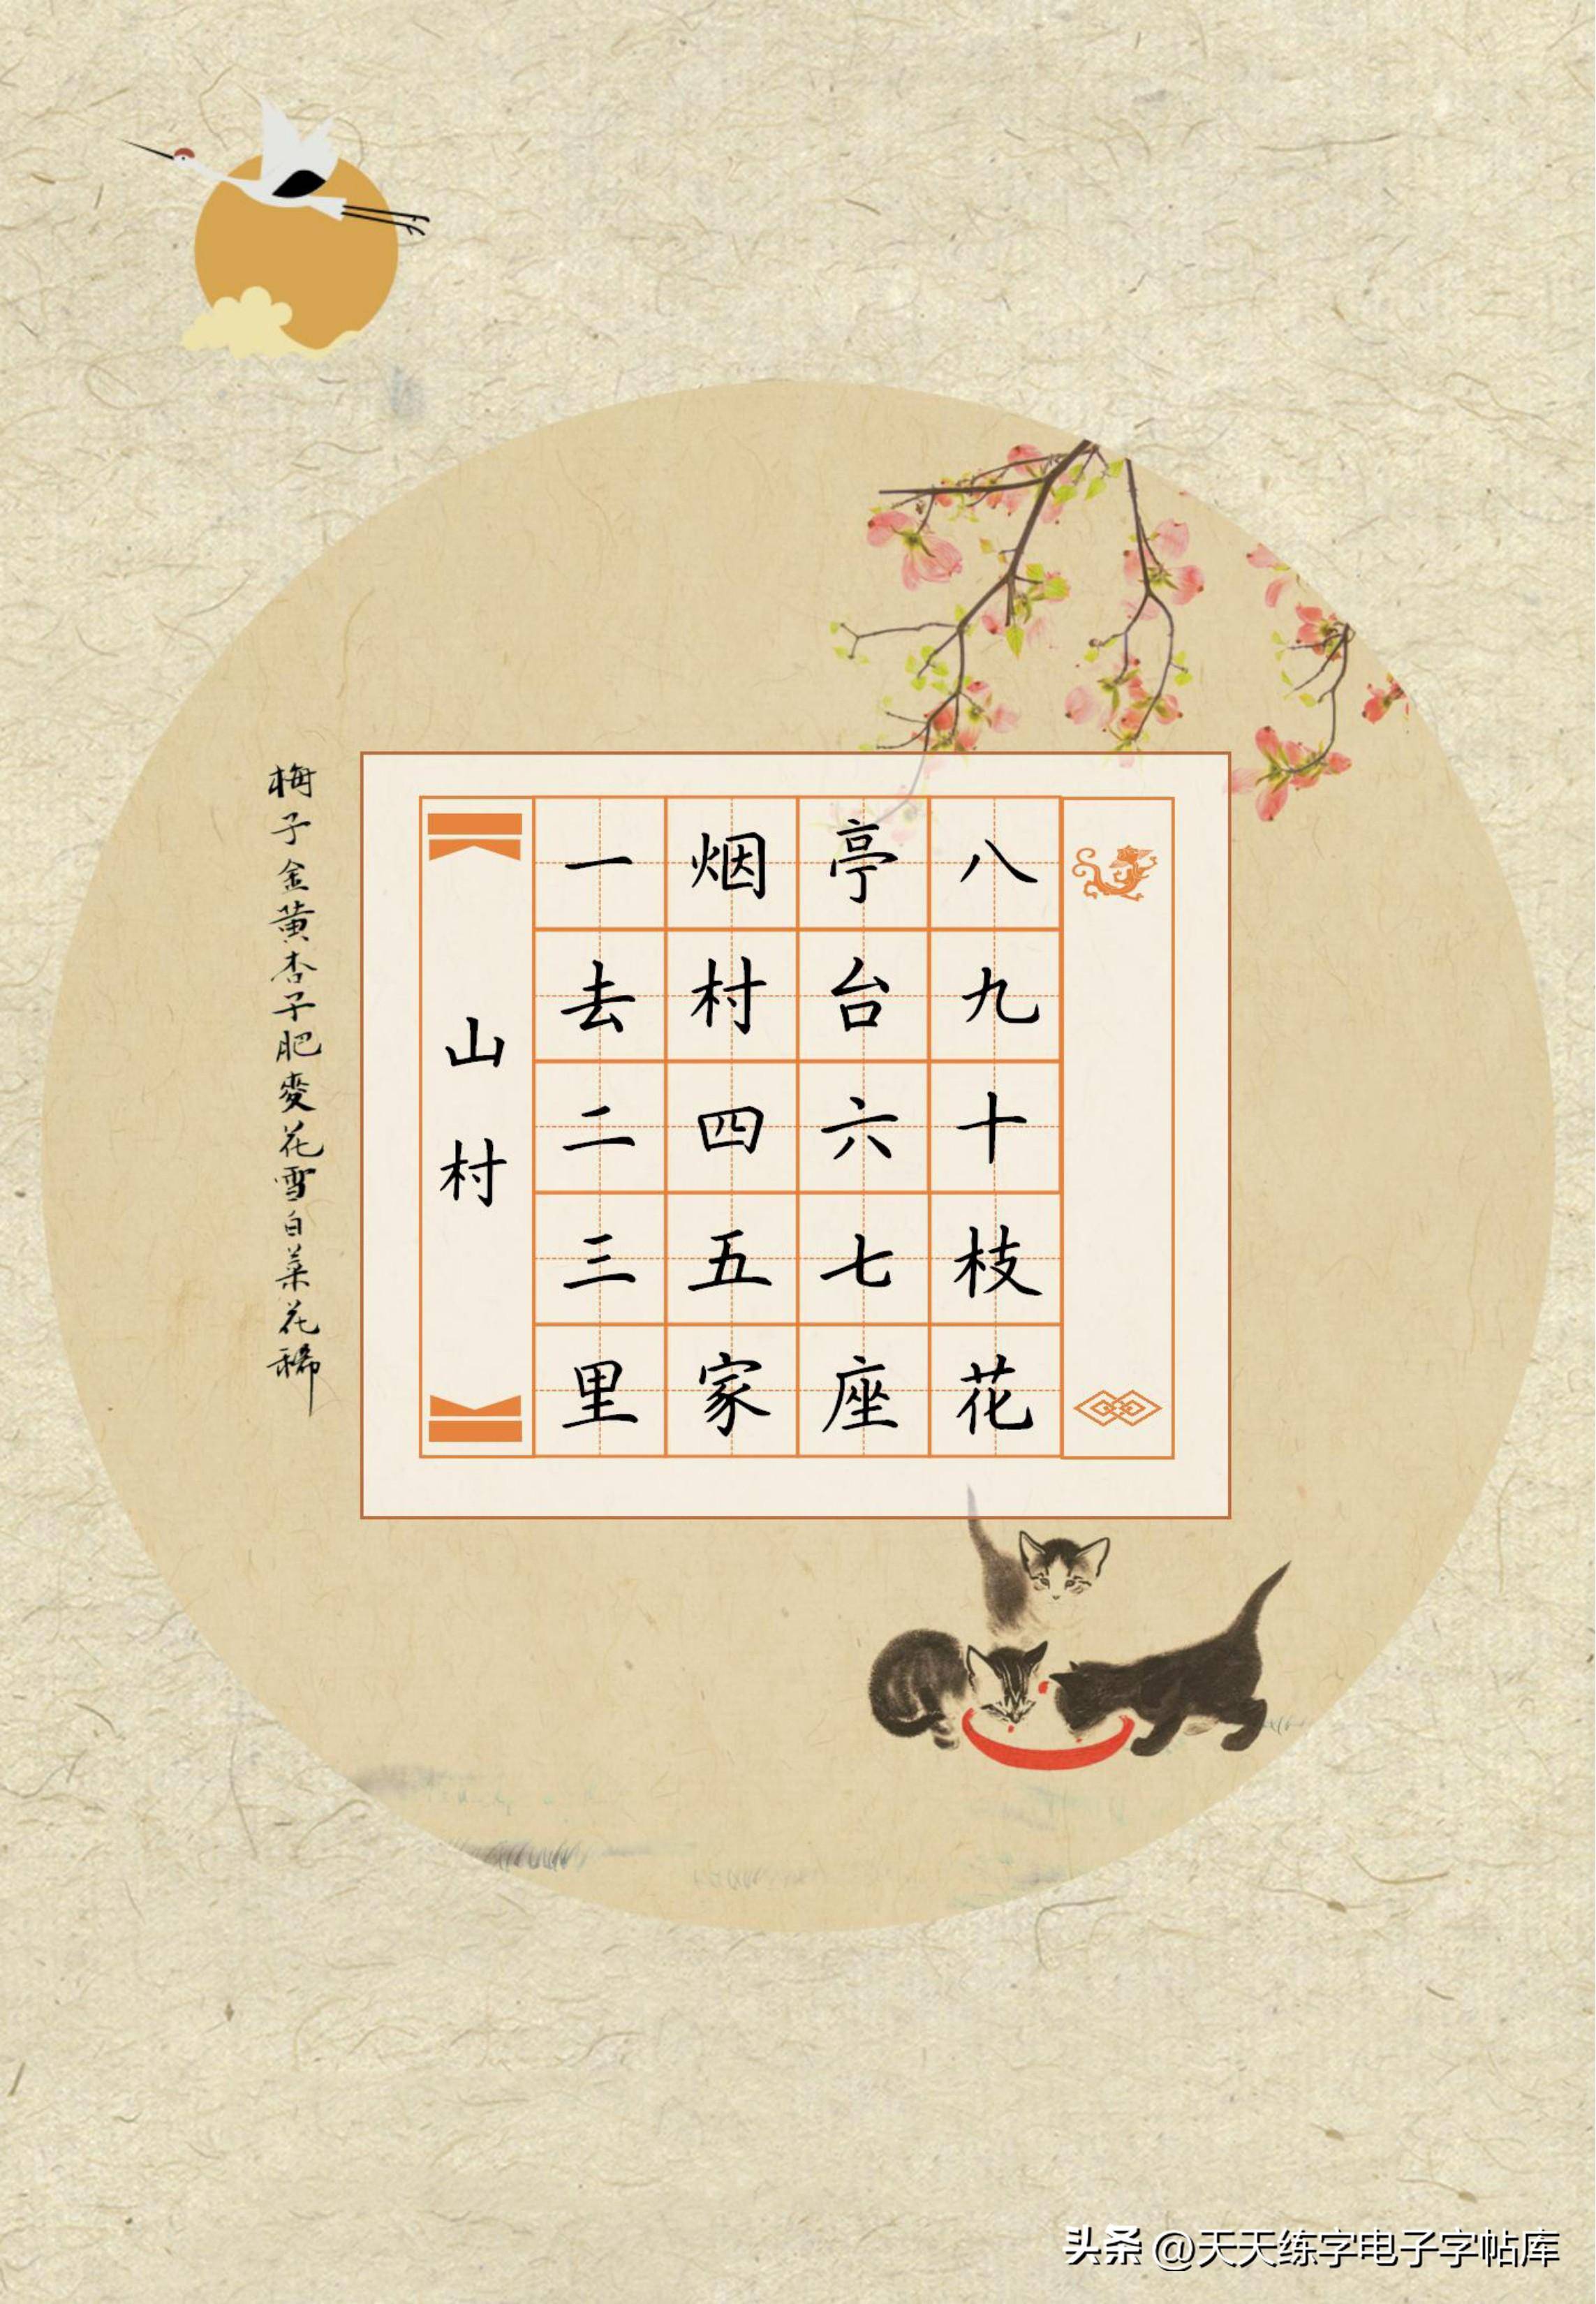 山村
一去二三里
烟村四五家
亭台六七座
八九十枝花
梅子金黄杏子肥麦花雪白菜花稀
头条 @天天练字电子字帖库